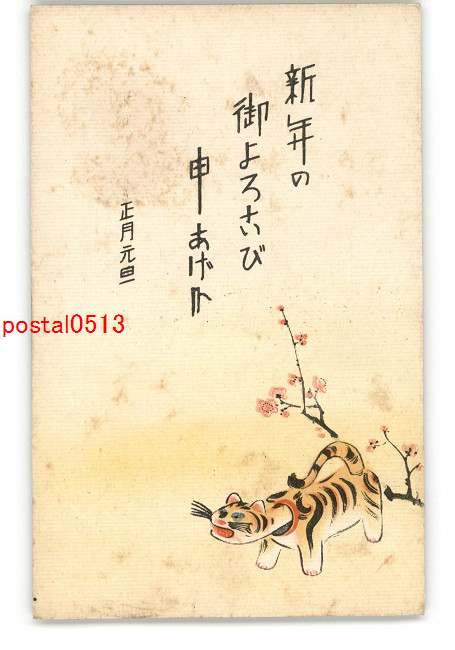 新年の
御よろこび
申あげ𛀙
正月元旦
postal0513